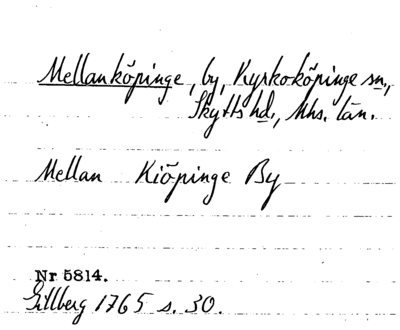 Mellanköpinge, by, Kyrkoköpinge sn,
Skytts hd., Mhs. län.
Mellan Kiöpinge By
Nr 5814.
Gillberg 1765 s. 30.